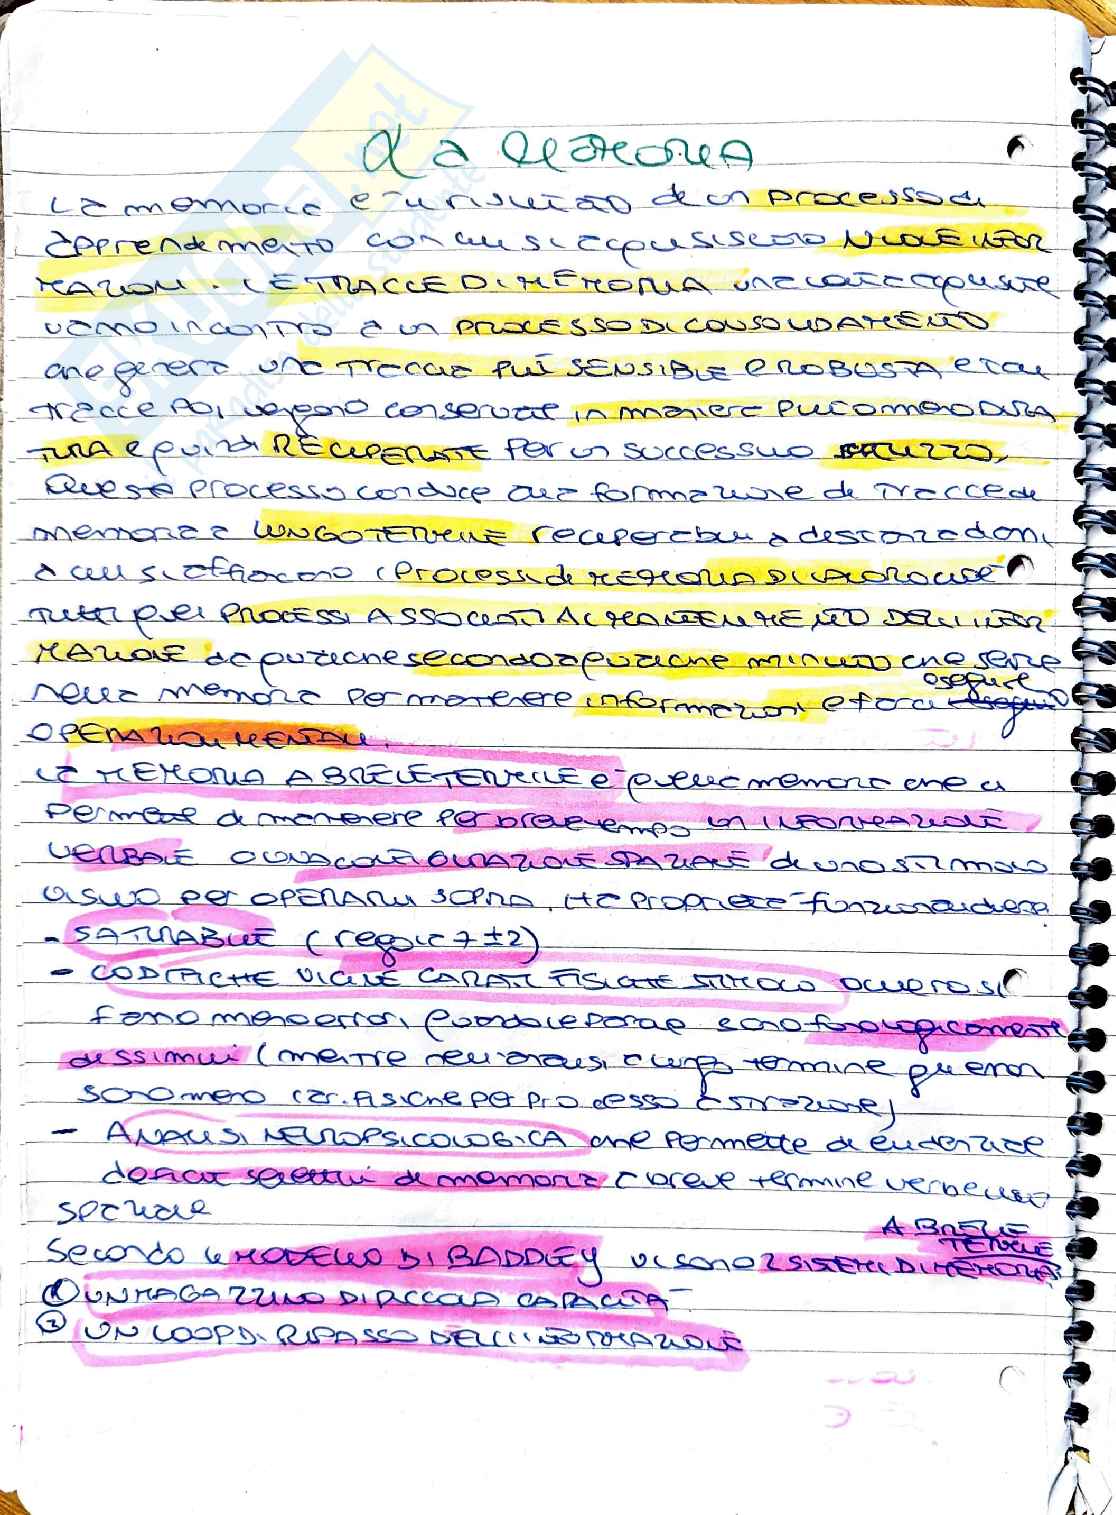 La MEMORIA
La memoria è un risultato di un processo di
apprendimento con cui si acquisiscono NUOVE INFOR
MAZIONI. LE TRACCE DI MEMORIA una volta acquisite
vanno incontro a un PROCESSO DI CONSOLIDAMENTO
che genera una traccia PIÙ SENSIBILE e ROBUSTA e tali
tracce poi vengono conservate in maniera più o meno DURA
TURA e quindi RECUPERATE per un successivo UTILIZZO,
Questo processo conduce alla formazione di tracce di
memoria a LUNGO TERMINE recuperabili a distanza di anni
a cui si affiancano i processi di MEMORIA DI LAVORO cioè
tutti quei PROCESSI ASSOCIATI AL MANTENIMENTO DELL'INFOR
MAZIONE da qualche secondo a qualche minuto che serve
nella memoria per mantenere informazioni e farci eseguire
OPERAZIONI MENTALI.
La MEMORIA A BREVE TERMINE è quella memoria che ci
permette di mantenere per breve tempo un INFORMAZIONE
VERBALE O UNA CONFIGURAZIONE SPAZIALE di uno stimolo
visivo per OPERARVI SOPRA. Ha proprietà funzionali
- SATURABILE (regola 7 ± 2)
- CODIFICHE VIGILE CARATT FISICHE STIMOLO ovvero si
fanno meno errori quando le parole sono fonologicamente
dissimili (mentre nell'analisi a lungo termine gli errori
sono meno car. fisiche per processo astrazione)
- ANALISI NEUROPSICOLOGICA che permette di evidenziare
deficit selettivi di memoria a breve termine verbale o
spaziale
Secondo il MODELLO DI BADDLEY vi sono 2 SISTEMI DI MEMORIA A BREVE TERMINE
① UN MAGAZZINO DI PICCOLA CAPACITÀ
② UN LOOP DI RIPASSO DELL'INFORMAZIONE